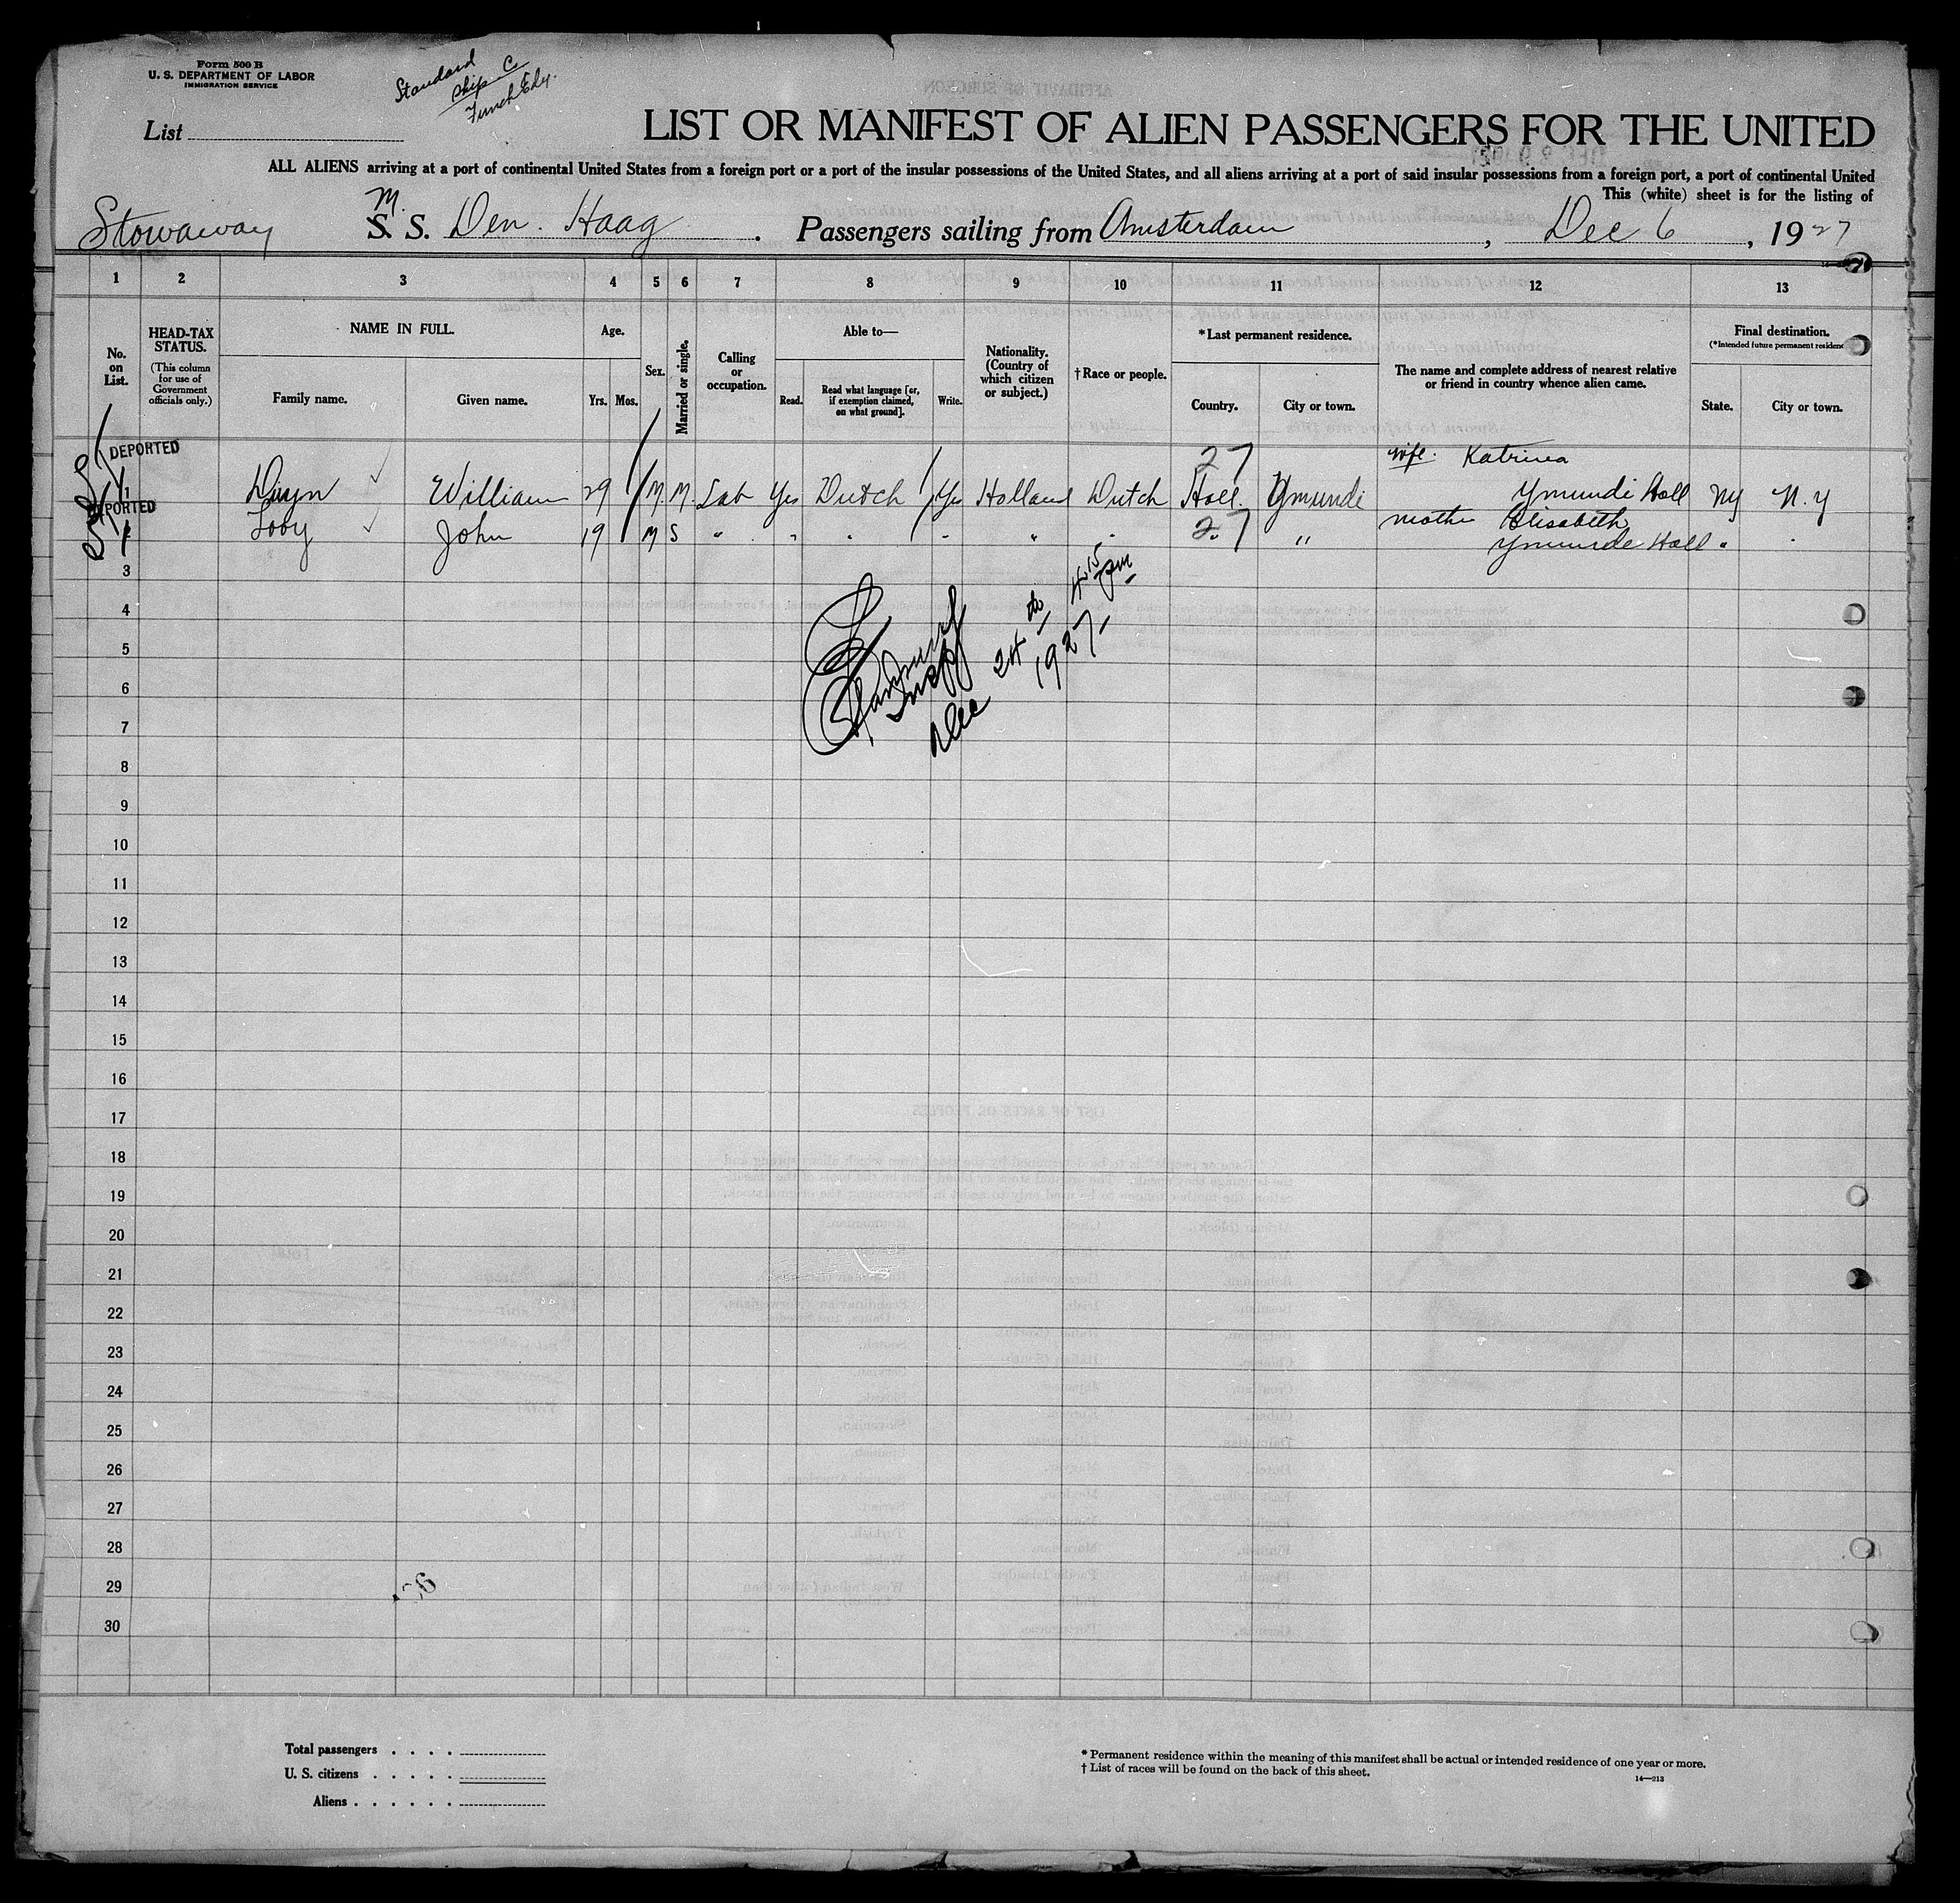 Form 500 B
U. S. DEPARTMENT OF LABOR
IMMIGRATION SERVICE
Standard
Ship Co
Funch Edy.
List
LIST OR MANIFEST OF ALIEN PASSENGERS FOR THE UNITED
ALL ALIENS arriving at a port of continental United States from a foreign port or a port of the insular possessions of the United States, and all aliens arriving at a port of said insular possessions from a foreign port, a port of continental United
This (white) sheet is for the listing of
Stowaway M. S. S. Den Haag. Passengers sailing from Amsterdam, Dec 6, 1927
1 2 3 4 5 6 7 8 9 10 11 12 13
No. on List.
HEAD-TAX STATUS.
(This column for use of Government officials only.)
NAME IN FULL.
Family name. Given name.
Age.
Yrs. Mos.
Sex.
Married or single.
Calling or occupation.
Able to—
Read. Read what language [or, if exemption claimed, on what ground]. Write.
Nationality. (Country of which citizen or subject.)
† Race or people.
*Last permanent residence.
Country. City or town.
The name and complete address of nearest relative or friend in country whence alien came.
Final destination.
(*Intended future permanent residence
State. City or town.
DEPORTED
27 wife. Katrina
1 William 29 M. M. Lab Yes Dutch Yes Holland Dutch Holl. Ymundi Ymundi Holl NY N. Y
PORTED
John 19 M S " " " " " " 27 " mother Elisabeth
Ymunde Holl "
3
4
Dec 24th 4.15 pm
1927
5
6
7
8
9
10
11
12
13
14
15
16
17
18
19
20
21
22
23
24
25
26
27
28
29
30
Total passengers . . . .
U. S. citizens . . . . .
Aliens . . . . . .
* Permanent residence within the meaning of this manifest shall be actual or intended residence of one year or more.
† List of races will be found on the back of this sheet.
14—213